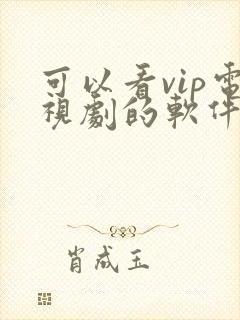 可以看vip電
視劇的軟件
肖成玉